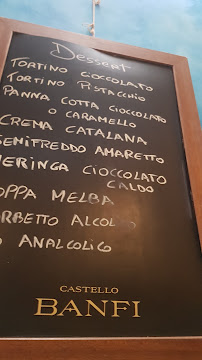 Dessert
TORTINO CIOCCOLATO
TORTINO PISTACCHIO
PANNA COTTA CIOCCOLATO
O CARAMELLO
CREMA CATALANA
SEMIFREDDO AMARETTO
MERINGA CIOCCOLATO
CALDO
OPPA MELBA
ORBETTO ALCOL
O ANALCOLICO
CASTELLO
BANFI